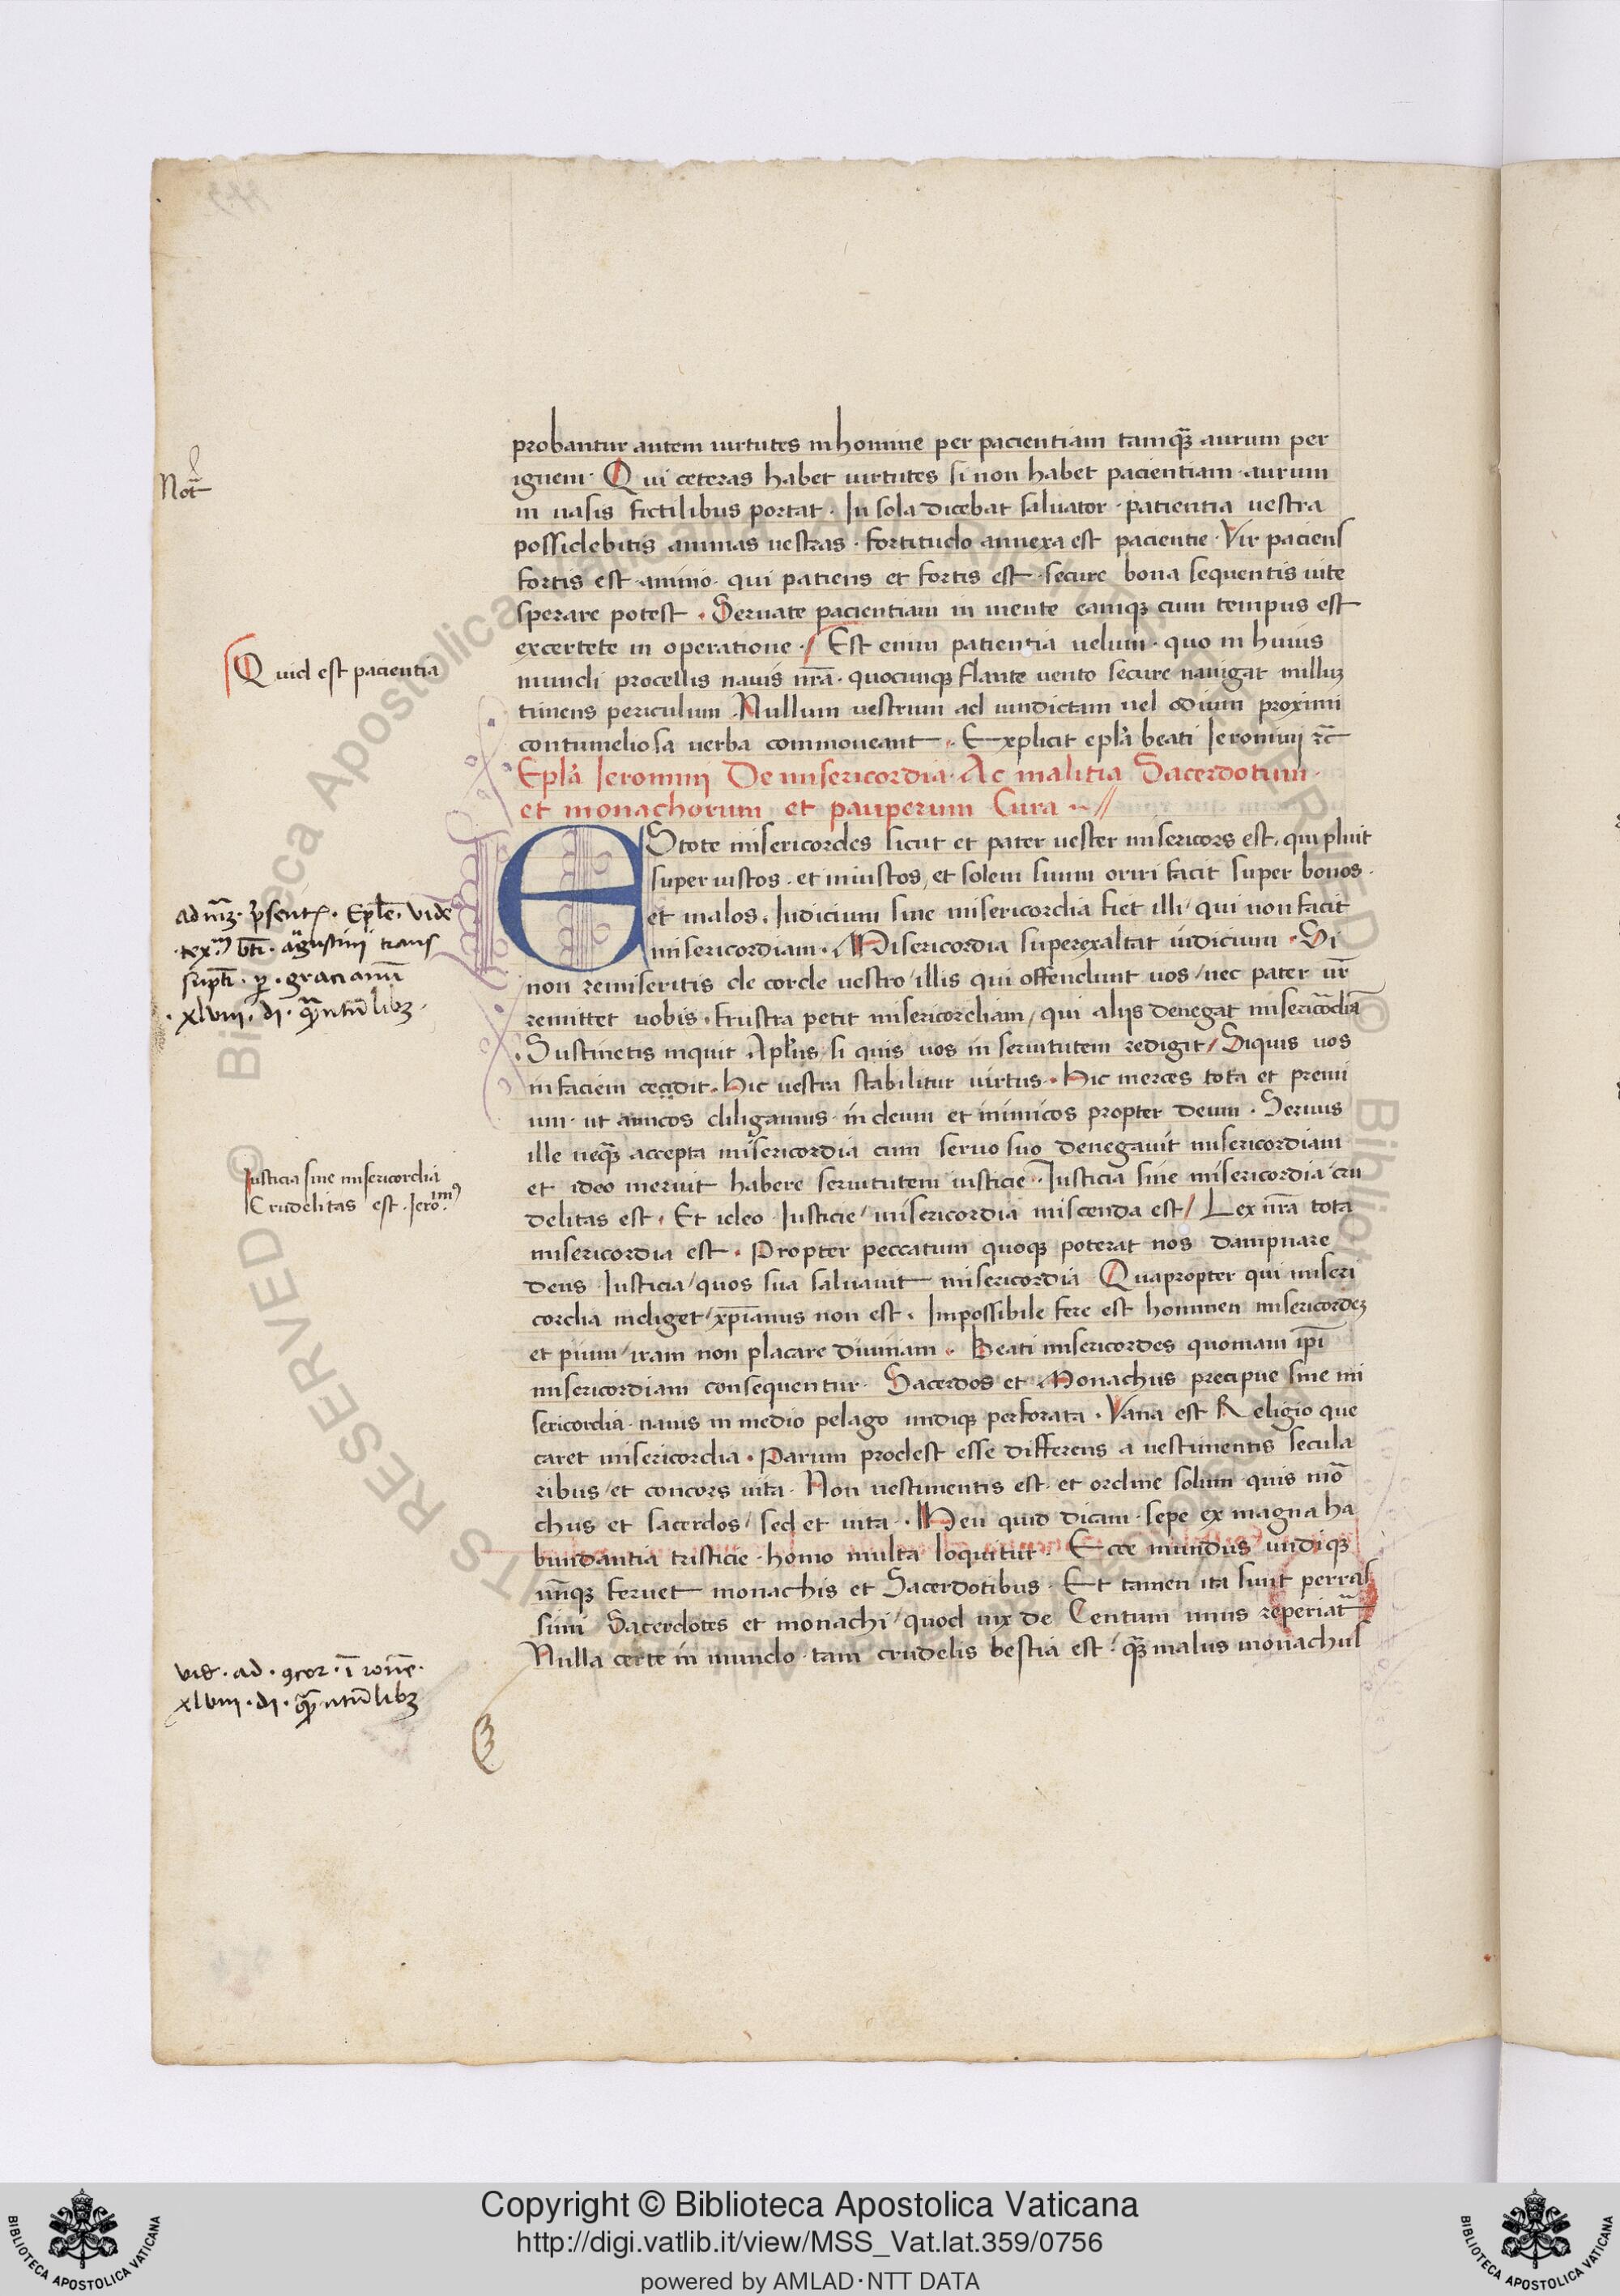 probantur autem uirtutes in homine per pacientiam tamqȝ aurum per
ignem · Qui ceteras habet uirtutes si non habet pacientiam · aurum
in uasis fictilibus portat · In sola dicebat saluator · patientia uestra
possidebitis animas uestras · fortitudo annexa est pacientie · Vir paciens
fortis est animo · qui patiens et fortis est · secure bona sequentis uite
sperare potest · Seruate pacientiam in mente eamqȝ cum tempus est
excertete in operatione · / Est enim patientia uelum · quo in huius
mundi procellis nauis nr̄a · quocunqȝ flante uento secure nauigat nulluȝ
timens periculum · Nullum uestrum ad uindictam uel odium proximi
contumeliosa uerba commoueant · Explicit epl̄a beati Ieronimij rc̄
Epl̄a Ieronimi De misericordia · Ac malitia Sacerdotum ·
et monachorum et pauperum Cura ~ //
EStote misericordes sicut et pater uester misericors est · qui pluit
super iustos · et iniustos, et solem suum oriri facit super bonos ·
et malos · Iudicium sine misericordia fiet illi / qui non facit
misericordiam · Misericordia superexaltat iudicium · Si
non remiseritis de corde uestro / illis qui offendunt uos / nec pater ur̄
remittet uobis · frustra petit misericordiam / qui alijs denegat misericōdiā
· Sustinetis inquit Apl̄us si quis uos in seruitutem redigit / Siquis uos
in faciem cecidit · Hic uestra stabilitur uirtus · Hic merces tota et premi
um · ut amicos diligamus · in deum et inimicos propter deum · Seruus
ille neqȝ accepta misericordia cum seruo suo denegauit misericordiam
et ideo meruit habere seruitutem iusticie · Iusticia sine misericordia cru
delitas est · Et ideo Iusticie / misericordia miscenda est / Lex nr̄a tota
misericordia est · Propter peccatum quoqȝ poterat nos dampnare
deus Iusticia / quos sua saluauit misericordia Quapropter qui miseri
cordia indiget / xp̄ianus non est · Impossibile fere est hominen misericordeȝ
et pium / iram non placare diuinam · Beati misericordes quoniam ip̄i
misericordiam consequentur · Sacerdos et Monachus precipue sine mi
sericordia · nauis in medio pelago undiqȝ perforata · Vana est Religio que
caret misericordia · Parum prodest esse differens a uestimentis secula
ribus / et concors uita · Non uestimentis est · et ordine solum quis mō
chus et sacerdos / sed et uita · Heu quid dicam · sepe ex magna ha
bundantia tristicie · homo multa loquitur · Ecce mundus undiqȝ
un̄qȝ feruet monachis et Sacerdotibus · Et tamen ita sunt perras
simi Sacerdotes et monachi / quod uix de Centum unus reperiat̄
Nulla certe in mundo tam crudelis bestia est / qȝ malus monachus
Not̄
Quid est pacientia
ad mȝ · p̄sent · Epl̄e · vide
tex · bt̄i · augustini trans
sup̄t · p · gracianū
· xlviij · di · qn̄tūlibȝ ·
Iusticia sine misericordia
Crudelitas est · Iero.ⁱᵐ⁹
vid · ad · 9cor · ī ione ·
xlviij · di · qn̄tūlibȝ
Copyright © Biblioteca Apostolica Vaticana
http://digi.vatlib.it/view/MSS_Vat.lat.359/0756
powered by AMLAD·NTT DATA
BIBLIOTECA APOSTOLICA VATICANA
BIBLIOTECA APOSTOLICA VATICANA